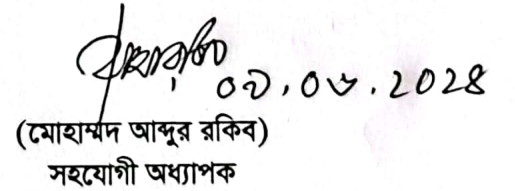 ০৯.০৬.২০২৪
(মোহাম্মদ আব্দুর রকিব)
সহযোগী অধ্যাপক